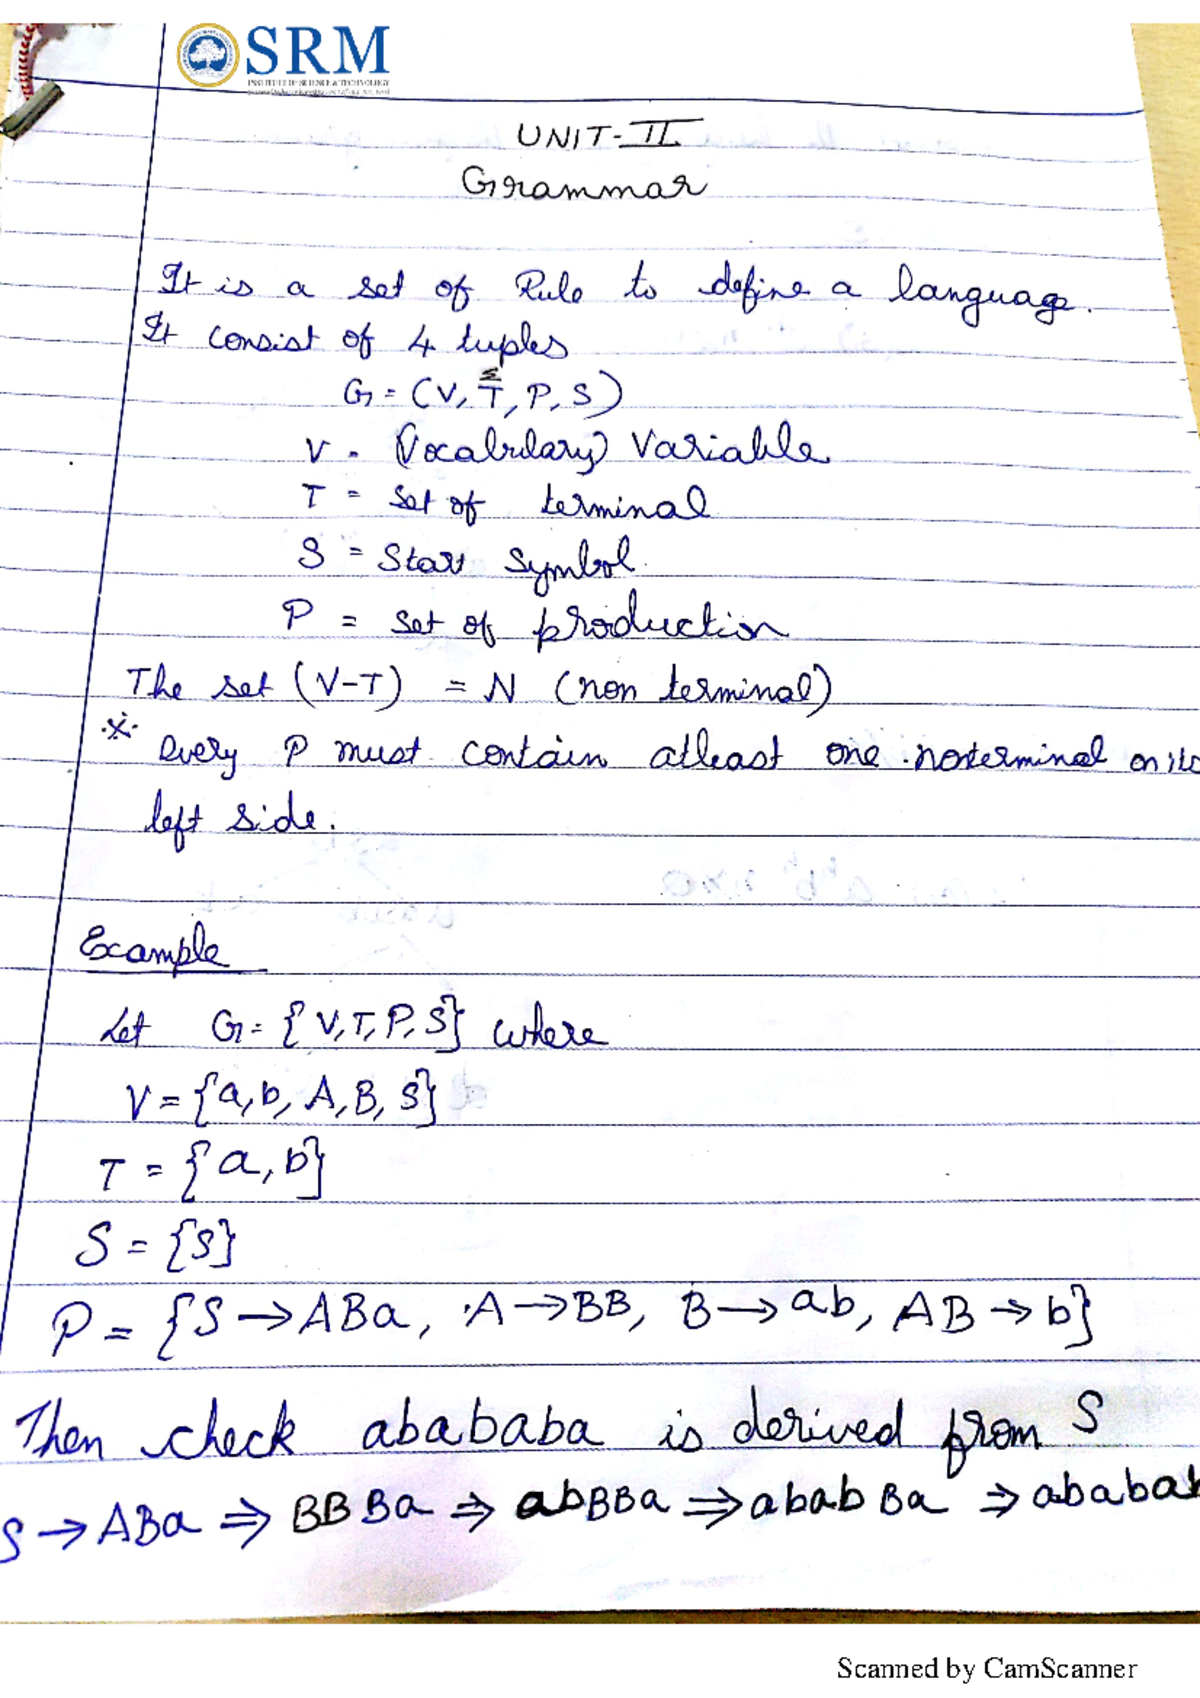 SRM
INSTITUTE OF SCIENCE & TECHNOLOGY
UNIT-II
Grammar
It is a set of Rule to define a language.
It consist of 4 tuples
Σ
G = (V, T, P, S)
V = (Vocabulary) Variable
T = Set of terminal
S = Start Symbol.
P = set of production
The set (V-T) = N (non terminal)
* Every P must contain atleast one nonterminal on its
left side.
Example
Let G = {V,T,P,S} where
V = {a,b, A,B, S}
T = {a,b}
S = {S}
P = {S → ABa, A → BB, B → ab, AB → b}
Then check abababa is derived from S
S → ABa ⇒ BBBa ⇒ abBBa ⇒ ababBa ⇒ ababab
Scanned by CamScanner